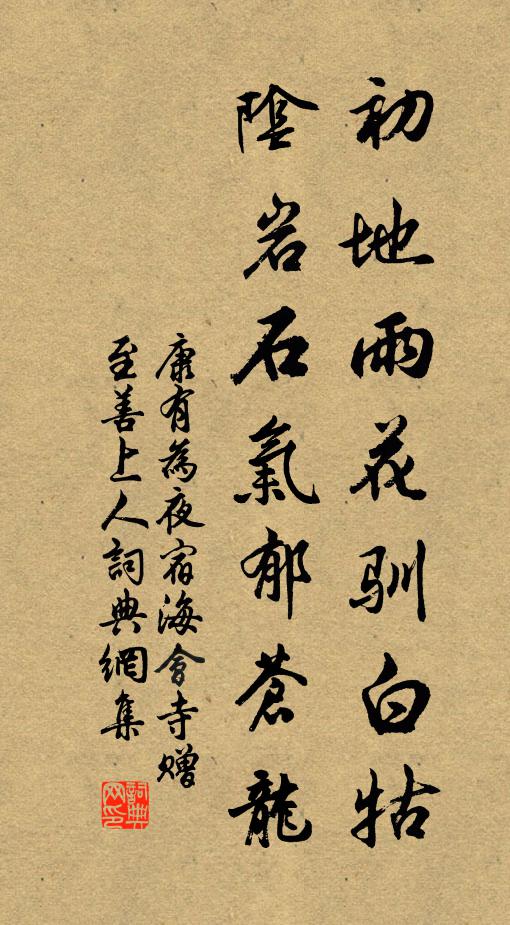 初地雨花馴白牯
陰岩石氣郁蒼龍
康有為夜宿海會寺贈
至善上人詞典網集
詞典网印